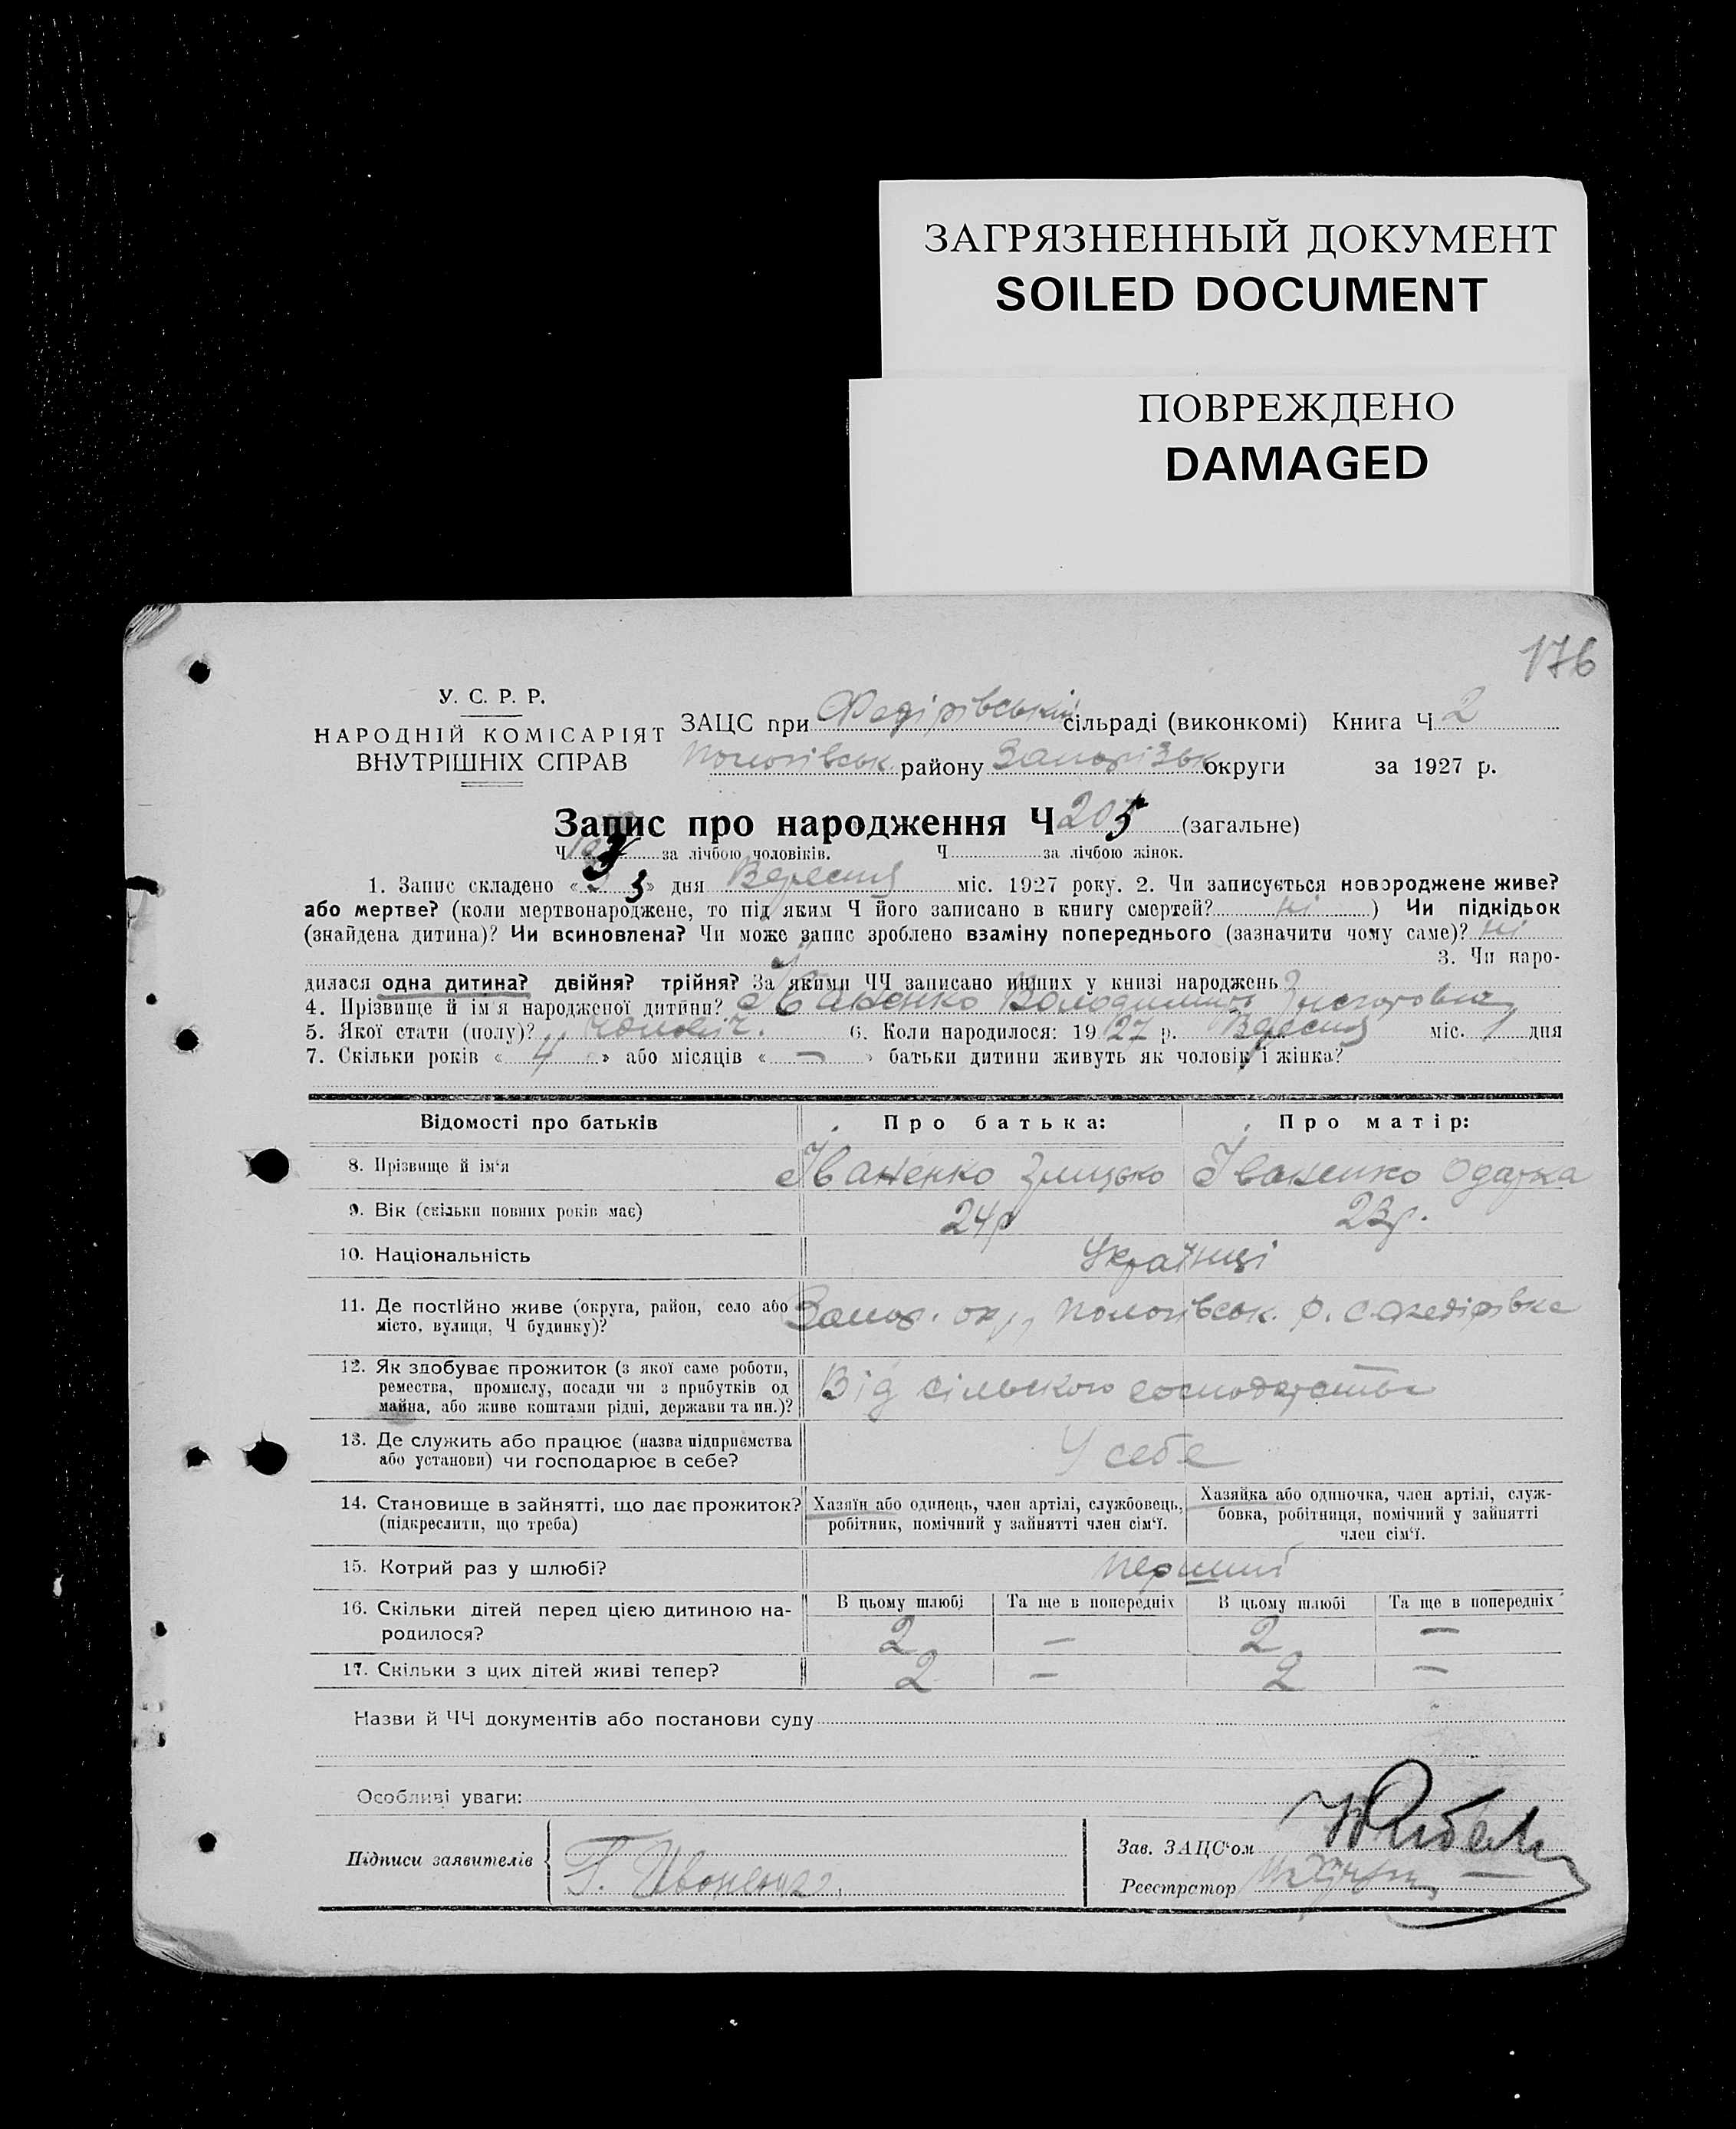 ЗАГРЯЗНЕННЫЙ ДОКУМЕНТ
SOILED DOCUMENT
ПОВРЕЖДЕНО
DAMAGED
176
У. С. Р. Р.
НАРОДНІЙ КОМІСАРІЯТ
ВНУТРІШНІХ СПРАВ
ЗАЦС при Федірівській сільраді (виконкомі) Книга Ч 2
Пологівськ району Запорізьк округи за 1927 р.
Запис про народження Ч 205 (загальне)
Ч за лічбою чоловіків. Ч за лічбою жінок.
1. Запис складено « 3 » дня Вересня міс. 1927 року. 2. Чи записується новороджене живе?
або мертве? (коли мертвонароджене, то під яким Ч його записано в книгу смертей? ні ) Чи підкідьок
(знайдена дитина)? Чи всиновлена? Чи може запис зроблено взаміну попереднього (зазначити чому саме)? ні
3. Чи наро-
дилася одна дитина? двійня? трійня? За якими ЧЧ записано инших у книзі народжень
4. Прізвище й ім'я народженої дитини? Іваненко Володимир
5. Якої стати (полу)? чоловіч. 6. Коли народилося: 1927 р. Вересня міс. 1 дня
7. Скільки років « 4 » або місяців « — » батьки дитини живуть як чоловік і жінка?
Відомості про батьків Про батька: Про матір:
8. Прізвище й ім'я Іваненко Грицько Іваненко Одарка
9. Вік (скільки повних років має) 24р 23р.
10. Національність Українці
11. Де постійно живе (округа, район, село або
місто, вулиця, Ч будинку)? Запор. окр, Пологівськ. р. с. Федірівка
12. Як здобуває прожиток (з якої саме роботи,
ремества, промислу, посади чи з прибутків од
майна, або живе коштами рідні, держави та ин.)? Від сільського господарства
13. Де служить або працює (назва підприємства
або установи) чи господарює в себе? У себе
14. Становище в зайнятті, що дає прожиток?
(підкреслити, що треба)
Хазяїн або одинець, член артілі, службовець,
робітник, помічний у зайнятті член сім'ї.
Хазяйка або одиночка, член артілі, служ-
бовка, робітниця, помічний у зайнятті
член сім'ї.
15. Котрий раз у шлюбі? перший
16. Скільки дітей перед цією дитиною на-
родилося?
В цьому шлюбі Та ще в попередніх В цьому шлюбі Та ще в попередніх
2 — 2 —
17. Скільки з цих дітей живі тепер? 2 — 2 —
Назви й ЧЧ документів або постанови суду
Особливі уваги:
Підписи заявителів Г. Иваненко
Зав. ЗАЦС'ом
Реєстратор